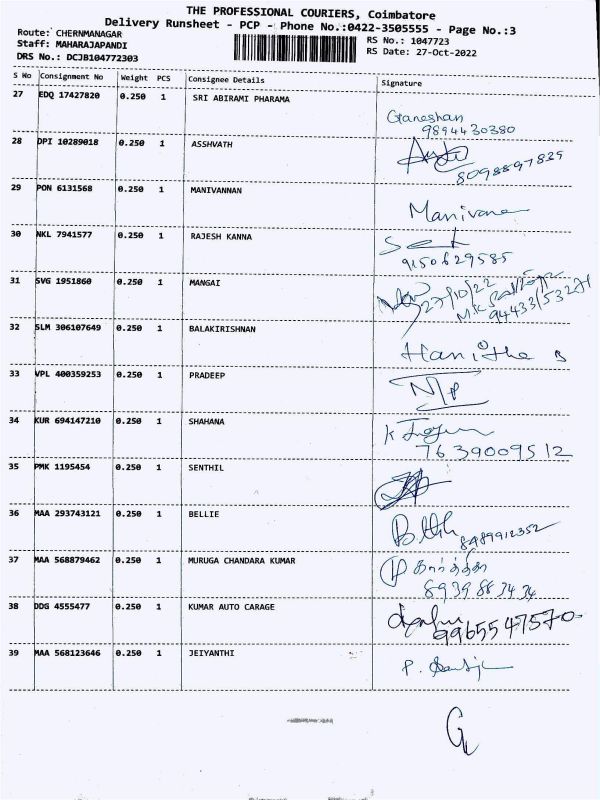 THE PROFESSIONAL COURIERS, Coimbatore
Delivery Runsheet - PCP - Phone No.:0422-3505555 - Page No.:3
Route: CHERNMANAGAR
Staff: MAHARAJAPANDI
DRS No.: DCJB104772303
RS No.: 1047723
RS Date: 27-Oct-2022
S No Consignment No Weight PCS Consignee Details Signature
27 EDQ 17427820 0.250 1 SRI ABIRAMI PHARAMA
Ganeshan
9894430380
28 DPI 10289018 0.250 1 ASSHVATH
8098897839
29 PON 6131568 0.250 1 MANIVANNAN
Manivana
30 NKL 7941577 0.250 1 RAJESH KANNA
9150629585
31 SVG 1951860 0.250 1 MANGAI
27/10/22
94433/53271
32 SLM 306107649 0.250 1 BALAKIRISHNAN
Hanitha B
33 VPL 400359253 0.250 1 PRADEEP
N/P
34 KUR 694147210 0.250 1 SHAHANA
7639009512
35 PMK 1195454 0.250 1 SENTHIL
36 MAA 293743121 0.250 1 BELLIE
8489912352
37 MAA 568879462 0.250 1 MURUGA CHANDARA KUMAR
கார்த்திகா
8939883434
38 DDG 4555477 0.250 1 KUMAR AUTO CARAGE
9965547570
39 MAA 568123646 0.250 1 JEIYANTHI